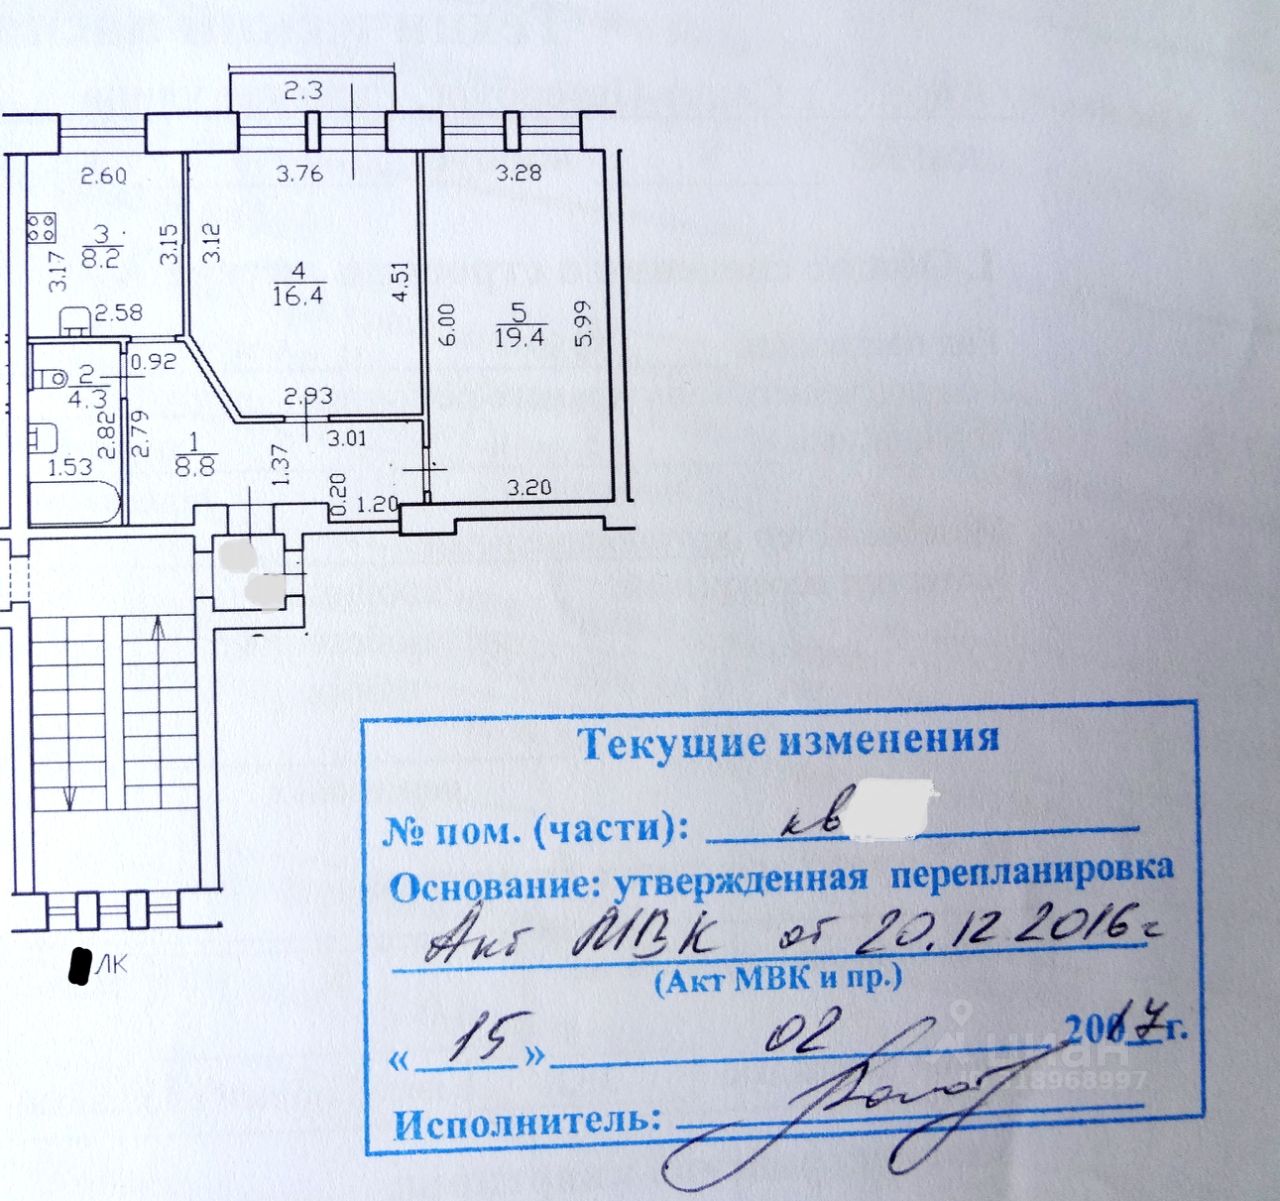 2.3
2.60
3.76
3.28
3
8.2
3.15
3.12
3.17
4
16.4
4.51
6.00
5
19.4
5.99
2.58
0.92
2
4.3
2.93
2.82
2.79
1
8.8
3.01
1.37
1.53
0.20
1.20
3.20
ЛК
Текущие изменения
№ пом. (части): кв
Основание: утвержденная перепланировка
Акт МВК от 20.12.2016г
(Акт МВК и пр.)
« 15 » 02 20017г.
циан
18968997
Исполнитель: